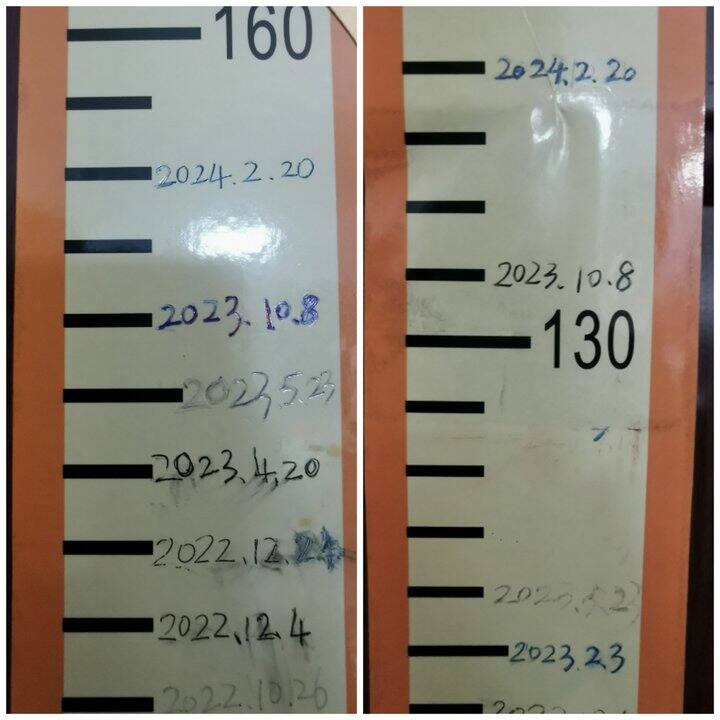 160
2024.2.20
2023.10.8
2023.5.23
2023.4.20
2022.12.24
2022.12.4
2022.10.26
2024.2.20
2023.10.8
130
2023.5.23
2023.2.3